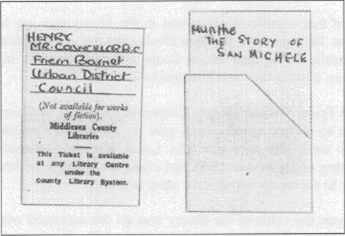 HENRY
MR. COUNCILLOR A.C.
Friern Barnet
Urban District
Council
(Not available for works
of fiction).
Middlesex County
Libraries
This Ticket is available
at any Library Centre
under the
County Library System.
Munthe
THE STORY OF
SAN MICHELE